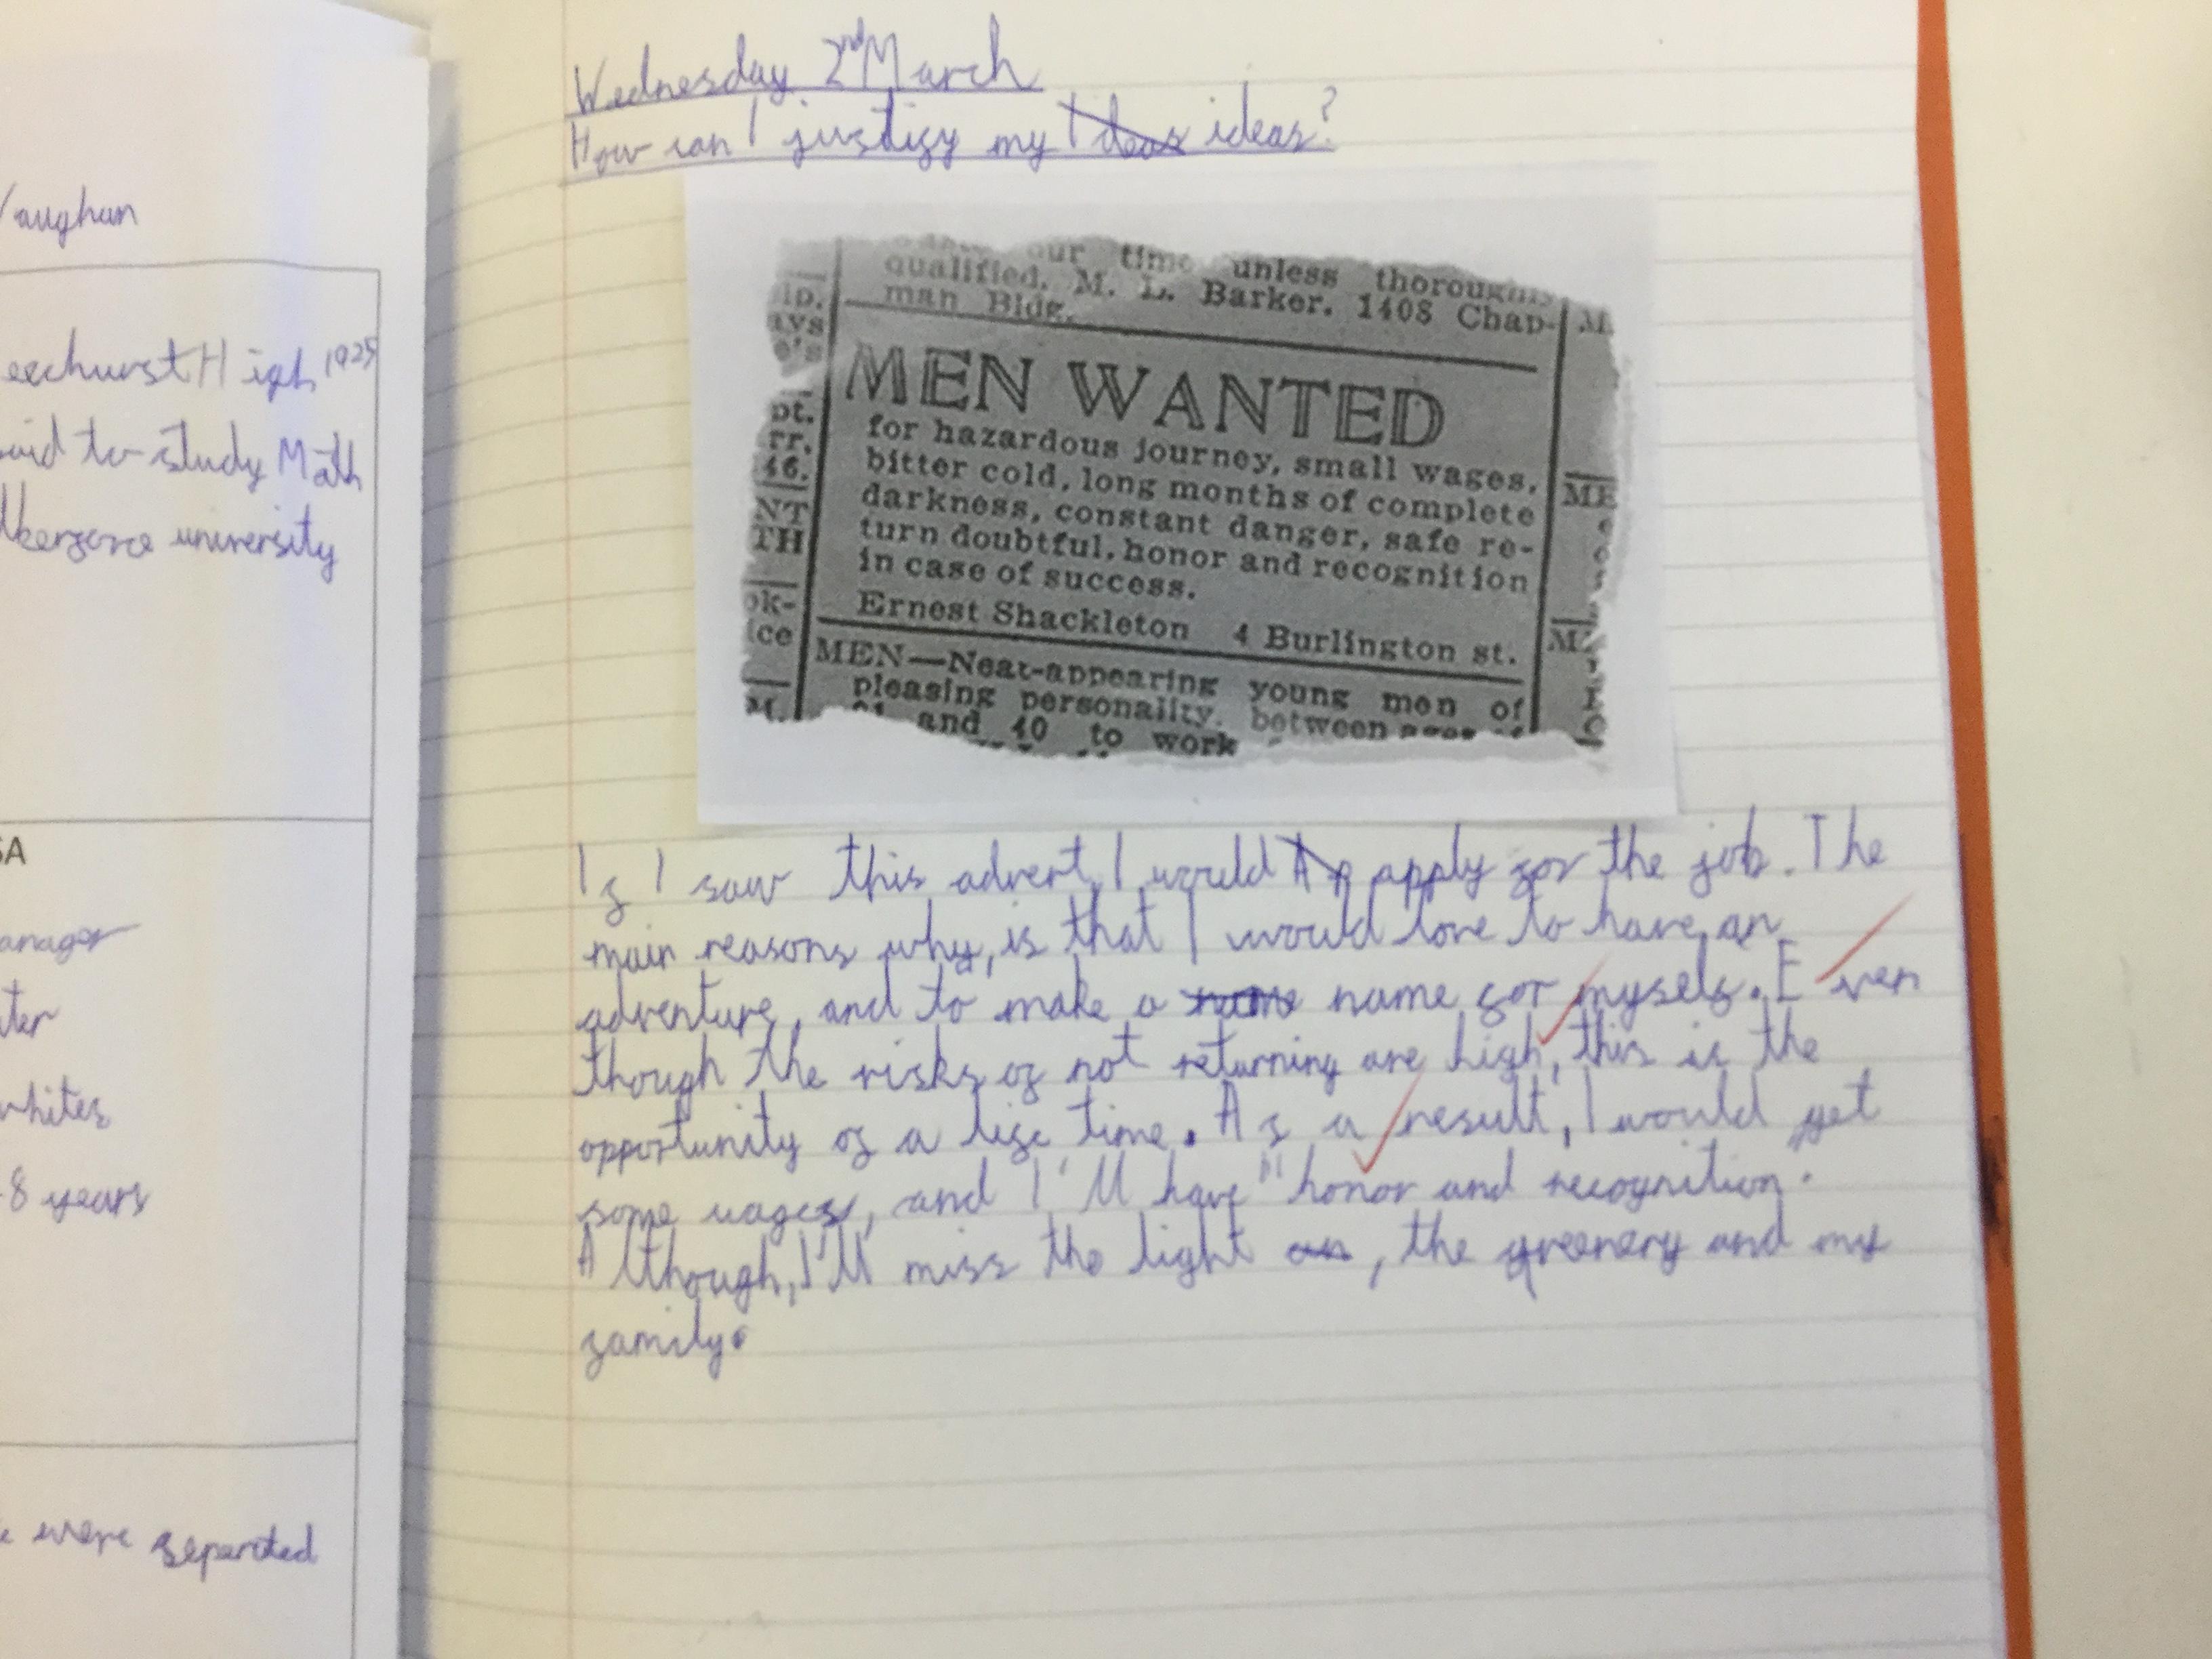 Vaughan
High 1925
to study Math
university
8 years
were separated
Wednesday 2nd March
How can I justify my Ideas ideas?
our time unless thoroughly
qualified. M. L. Barker. 1408 Chap-
man Bldg.
MEN WANTED
for hazardous journey, small wages,
bitter cold, long months of complete
darkness, constant danger, safe re-
turn doubtful, honor and recognition
in case of success.
Ernest Shackleton 4 Burlington st.
MEN—Neat-appearing young men of
pleasing personality, between ages of
and 40 to work
If I saw this advert, I would Ap apply for the job. The
main reasons why, is that I would love to have an
adventure, and to make a name name for myself. Even
though the risks of not returning are high, this is the
opportunity of a life time. As a result, I would get
some wages, and I'll have "honor and recognition".
Although, I'll miss the light an, the greenery and my
family.